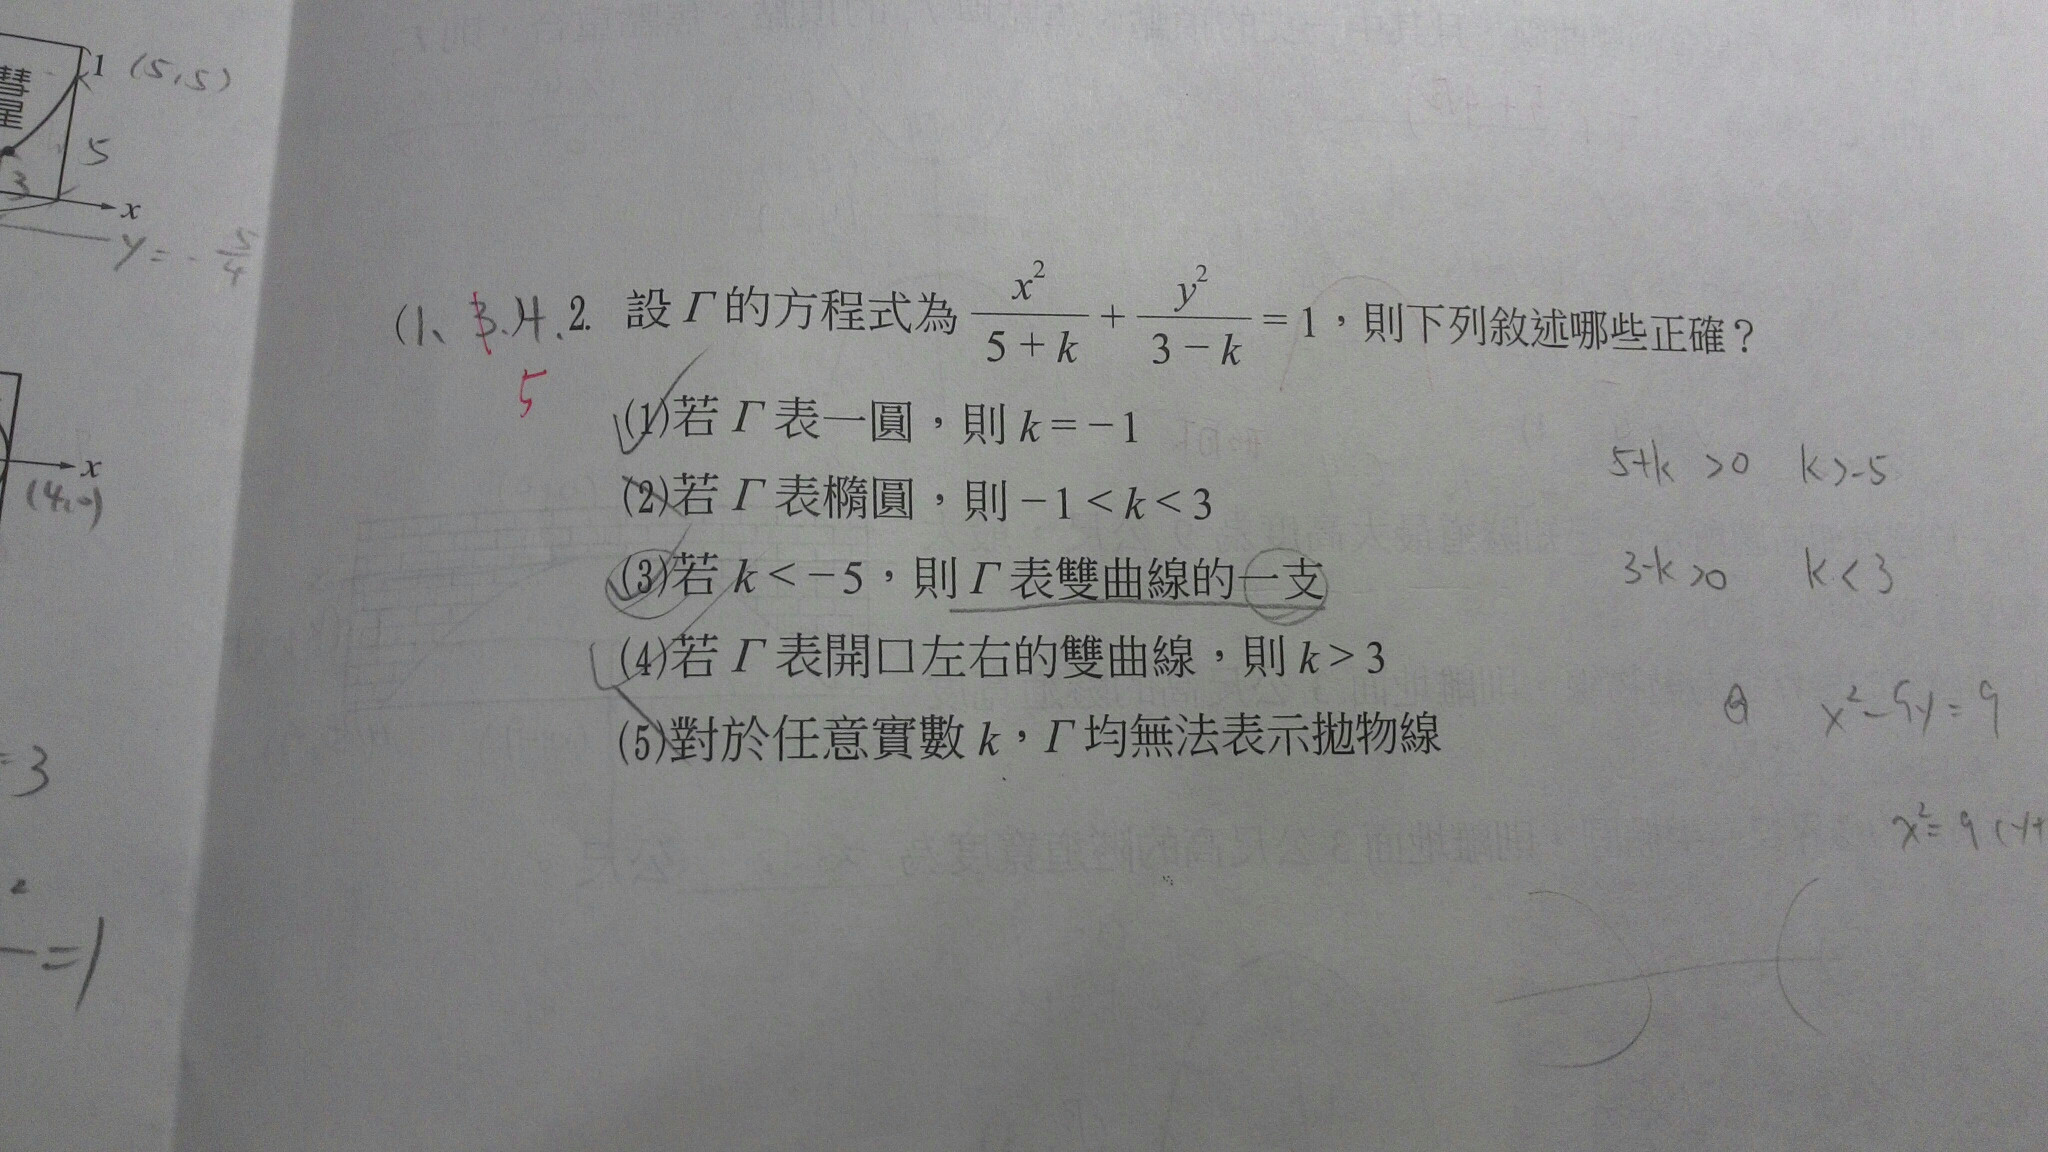 彗星
1 (5,5)
5
3
x
y = - 5/4
x
(4,0)
=3
2
=1
(1、3.)4.
5
2. 設 Γ 的方程式為 x²/(5+k) + y²/(3-k) = 1，則下列敘述哪些正確？
(1)若 Γ 表一圓，則 k = -1
(2)若 Γ 表橢圓，則 -1 < k < 3
(3)若 k < -5，則 Γ 表雙曲線的一支
(4)若 Γ 表開口左右的雙曲線，則 k > 3
(5)對於任意實數 k，Γ 均無法表示拋物線
5+k >0 k>-5
3-k >0 k<3
x²-9y=9
x²=9(y+